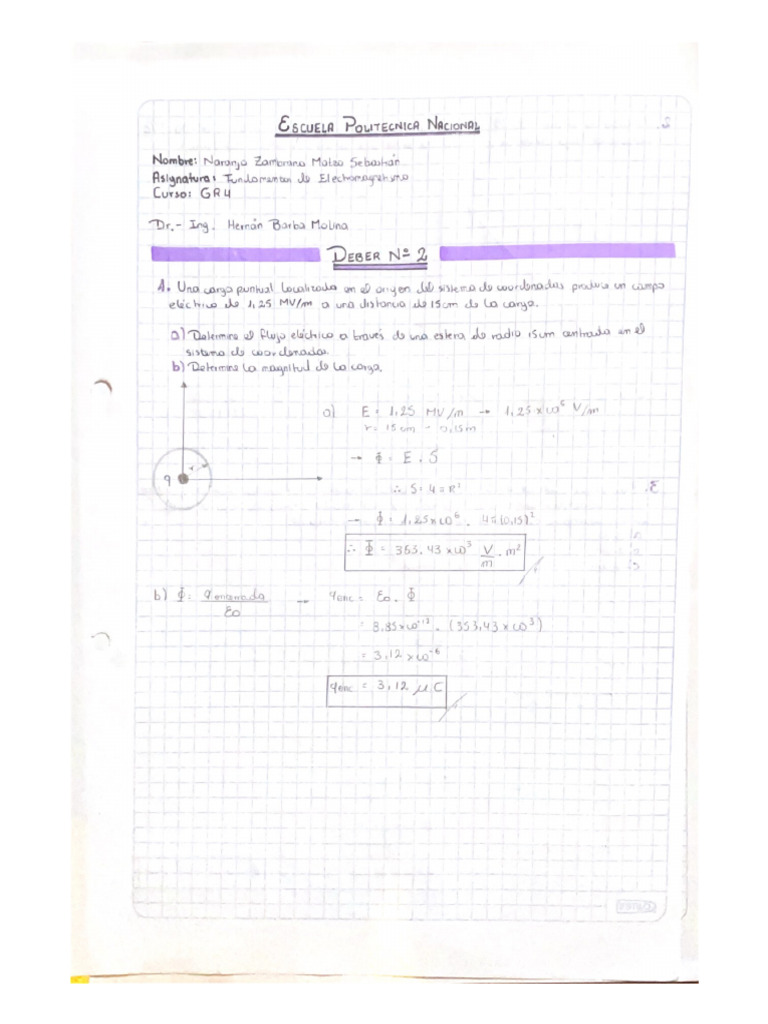 ESCUELA POLITECNICA NACIONAL
Nombre: Naranjo Zambrano Mateo Sebastián
Asignatura: Fundamentos de Electromagnetismo
Curso: GR4
Dr.- Ing. Hernán Barba Molina
DEBER Nº 2
1. Una carga puntual localizada en el origen del sistema de coordenadas produce un campo
eléctrico de 1,25 MV/m a una distancia de 15cm de la carga.
a) Determine el flujo eléctrico a través de una esfera de radio 15cm centrada en el
sistema de coordenadas.
b) Determine la magnitud de la carga.
a) E = 1,25 MV/m → 1,25 x 10⁶ V/m
r = 15 cm - 0,15m
q
→ Φ = E . S
∴ S = 4π R²
→ Φ = 1,25x10⁶ . 4π(0,15)²
∴ Φ = 353,43 x10³ V/m . m²
b) Φ = q encerrada / εo → qenc = εo . Φ
= 8,85x10⁻¹² . (353,43 x10³)
= 3,12 x10⁻⁶
qenc = 3,12 μC